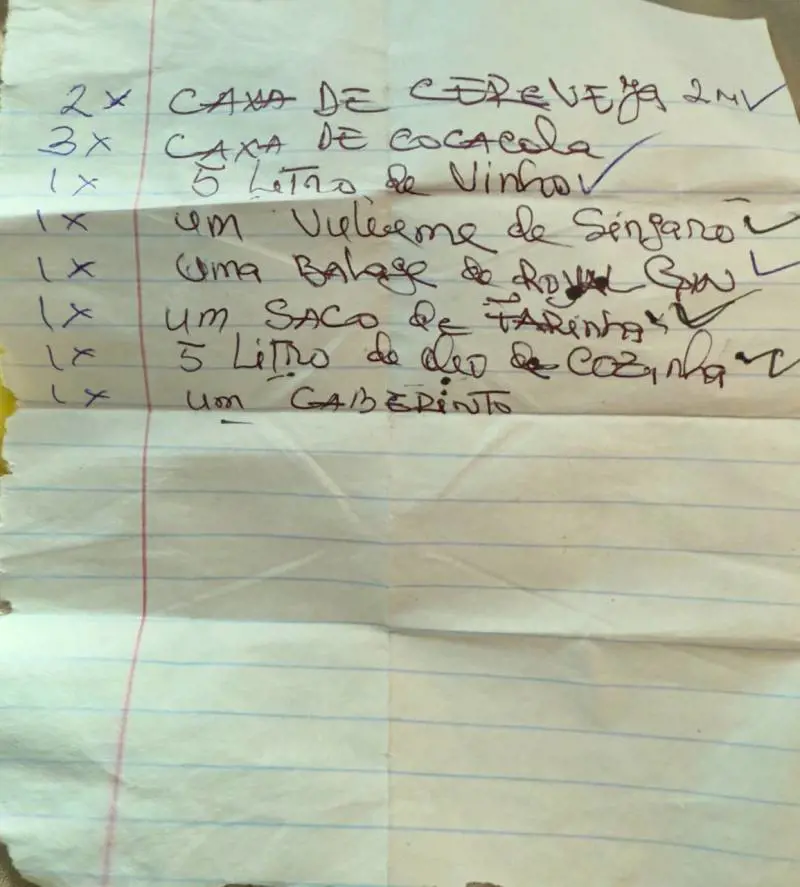 2x CAXA DE CEREVEJA 2M ✓
3x CAXA DE COCACOLA ✓
1x 5 LiTRO de Vinho ✓
1x um Vuleme de Singaro ✓
1x uma Balage de ROYAL GIN ✓
1x um SACO de FARinha ✓
1x 5 LiTRO de oleo de COZinha ✓
1x um CABERiNTO